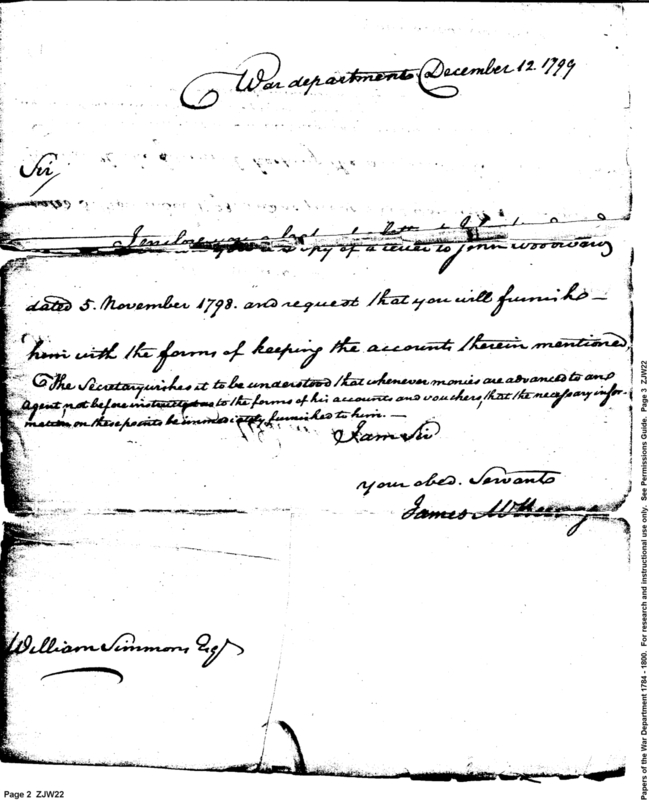 War department December 12. 1799
Sir
I enclose you a
copy of a letter to John Woodward
dated 5. November 1798. and request that you will furnish
him with the forms of keeping the accounts therein mentioned,
The Secretary wishes it to be understood that whenever monies are advanced to an
agent, not before instructed as to the forms of his accounts and vouchers, that the necessary infor-
mation on these points be immediately furnished to him. —
I am Sir
your obed. Servant
James McHenry
William Simmons Esqr
Page 2 ZJW22
Papers of the War Department 1784 - 1800. For research and instructional use only. See Permissions Guide. Page 3 ZJW22